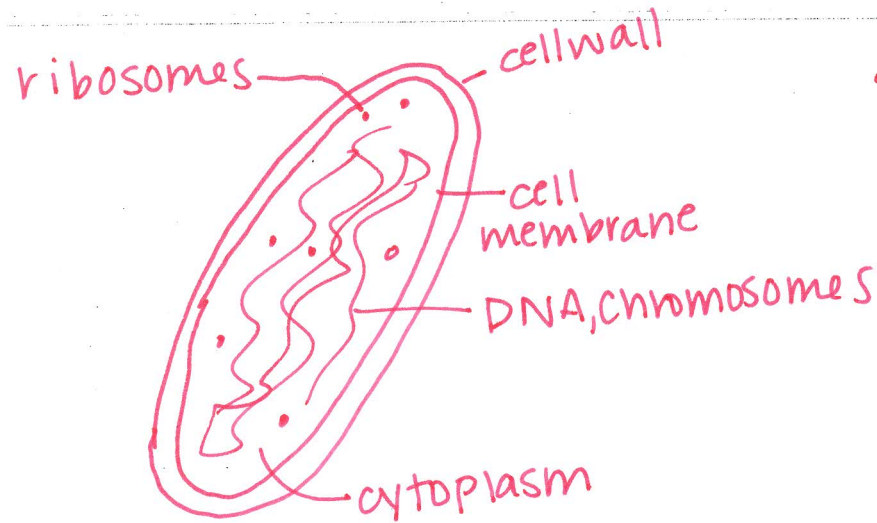 ribosomes
cellwall
cell
membrane
DNA, chromosomes
cytoplasm